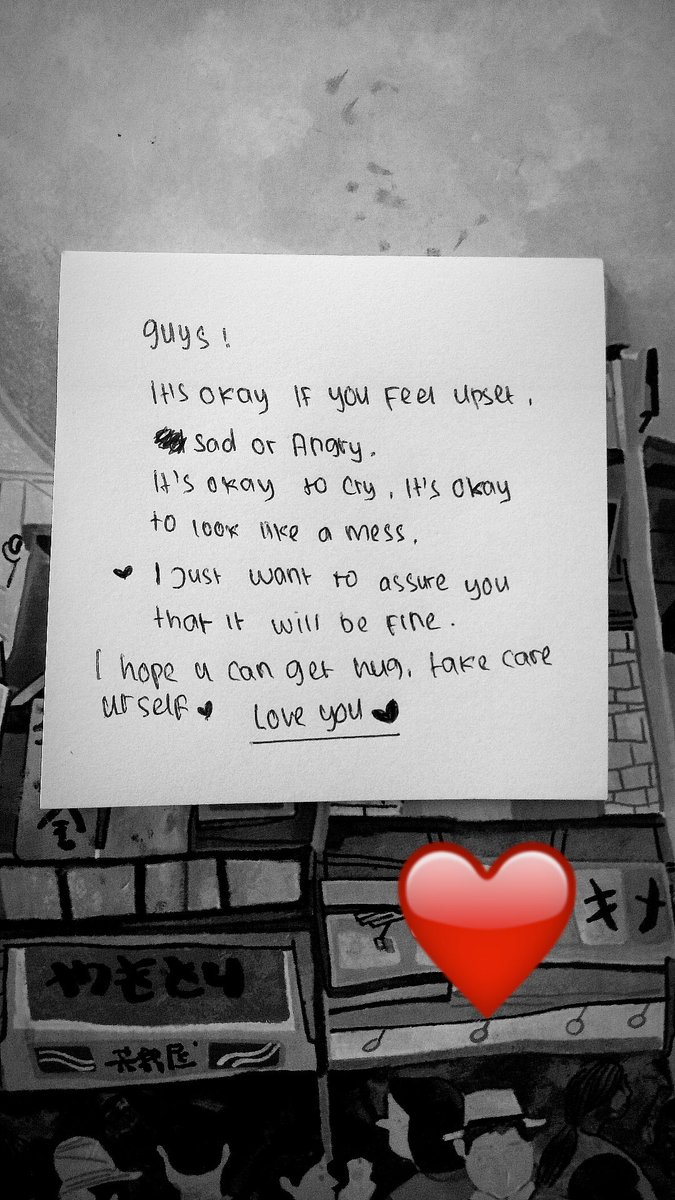 guys !
It's okay If you Feel upset ,
sad or Angry.
It's okay to cry , It's okay
to look like a mess.
I Just want to assure you
that it will be fine.
I hope u can get hug, take care
urself
Love you
やきとり
キナ